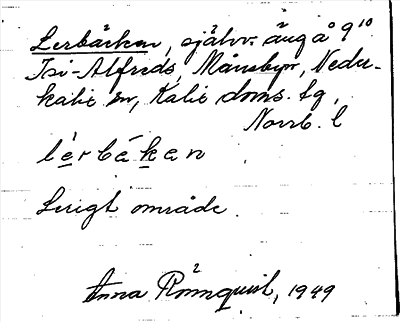 Lerbäcken, självv. äng å 9¹⁰
Isi-Alfreds, Månsbyn, Neder-
kalix sn, Kalix doms. tg,
Norrb. l
lèrbákan
Lerigt område.
Anna Rönnquist, 1949